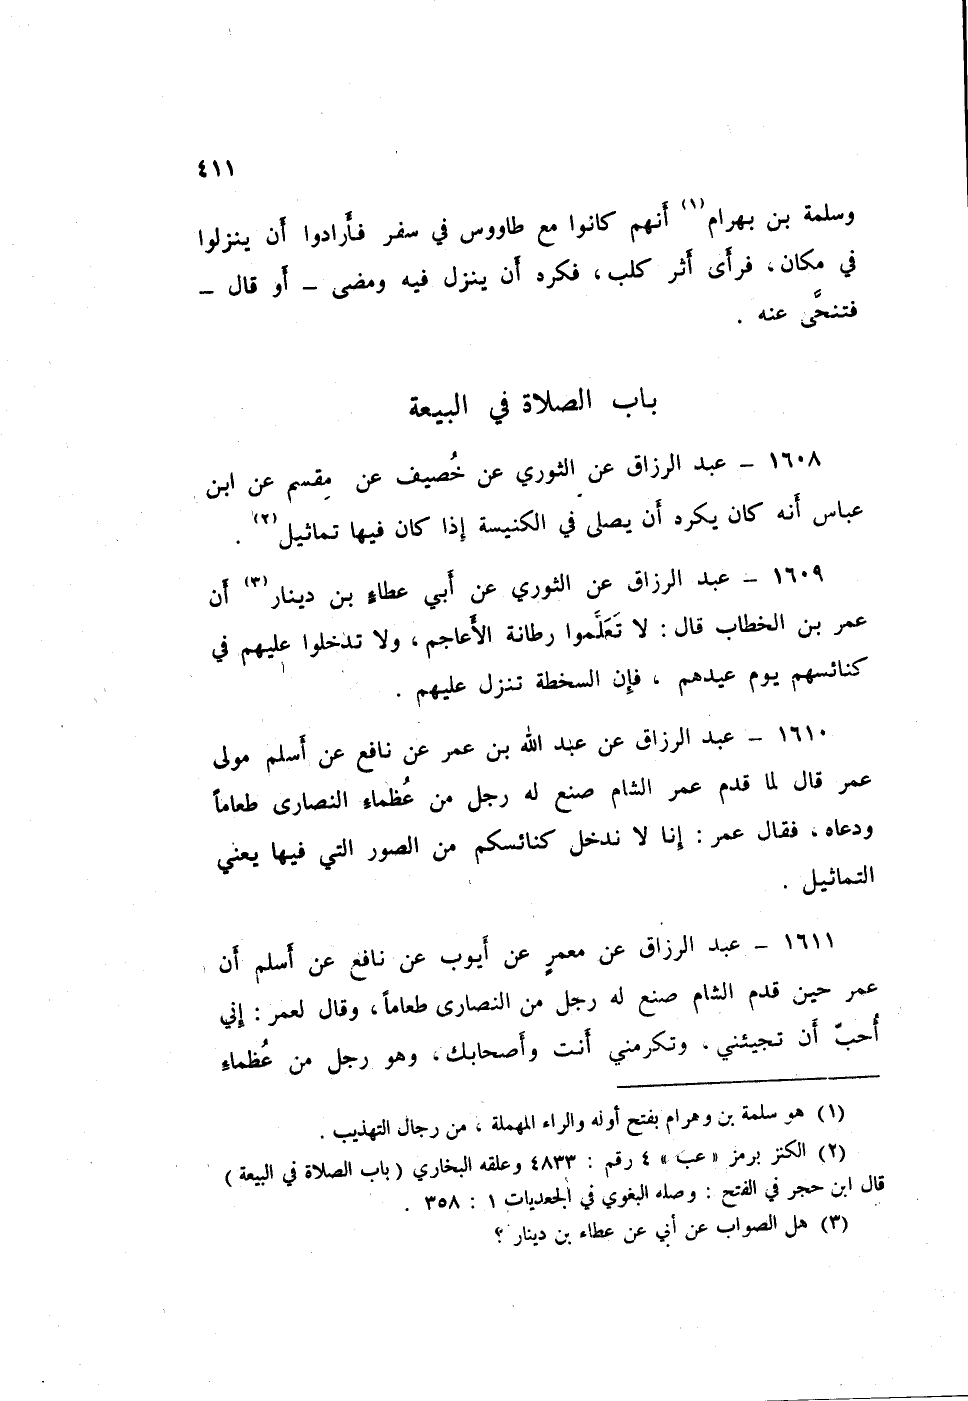 ٤١١
وسلمة بن بهرام(١) أنهم كانوا مع طاووس في سفر فأرادوا أن ينزلوا
في مكان، فرأى أثر كلب، فكره أن ينزل فيه ومضى – أو قال –
فتنحَّى عنه .
باب الصلاة في البيعة
١٦٠٨ – عبد الرزاق عن الثوري عن خُصيف عن مِقسم عن ابن
عباس أنه كان يكره أن يصلي في الكنيسة إذا كان فيها تماثيل(٢) .
١٦٠٩ – عبد الرزاق عن الثوري عن أبي عطاءٍ بن دينار(٣) أن
عمر بن الخطاب قال: لا تَعَلَّموا رطانة الأَعاجم، ولا تدخلوا عليهم في
كنائسهم يوم عيدهم ، فإن السخطة تنزل عليهم .
١٦١٠ – عبد الرزاق عن عبد الله بن عمر عن نافع عن أسلم مولى
عمر قال لما قدم عمر الشام صنع له رجل من عُظماءِ النصارى طعاماً
ودعاه، فقال عمر: إنا لا ندخل كنائسكم من الصور التي فيها يعني
التماثيل .
١٦١١ – عبد الرزاق عن معمرٍ عن أيوب عن نافع عن أسلم أن
عمر حين قدم الشام صنع له رجل من النصارى طعاماً، وقال لعمر: إني
أُحبّ أن تجيئني، وتكرمني أنت وأصحابك، وهو رجل من عُظماءِ
(١) هو سلمة بن وهرام بفتح أوله والراء المهملة ، من رجال التهذيب .
(٢) الكنز برمز « عب » ٤ رقم : ٤٨٣٣ وعلقه البخاري ( باب الصلاة في البيعة )
قال ابن حجر في الفتح : وصله البغوي في الجعديات ١ : ٣٥٨ .
(٣) هل الصواب عن أبي عن عطاء بن دينار ؟